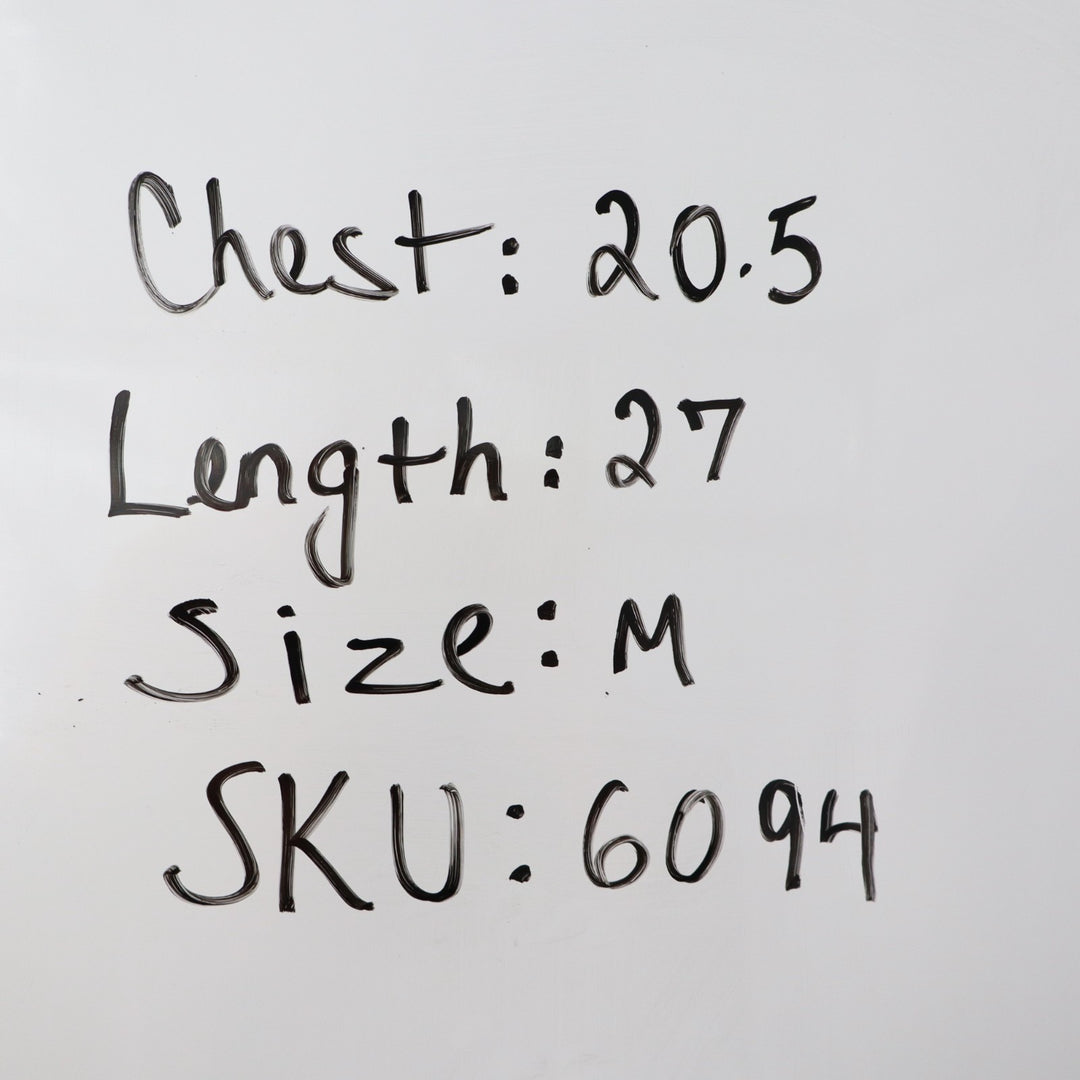 Chest: 20.5
Length: 27
Size: M
SKU: 6094